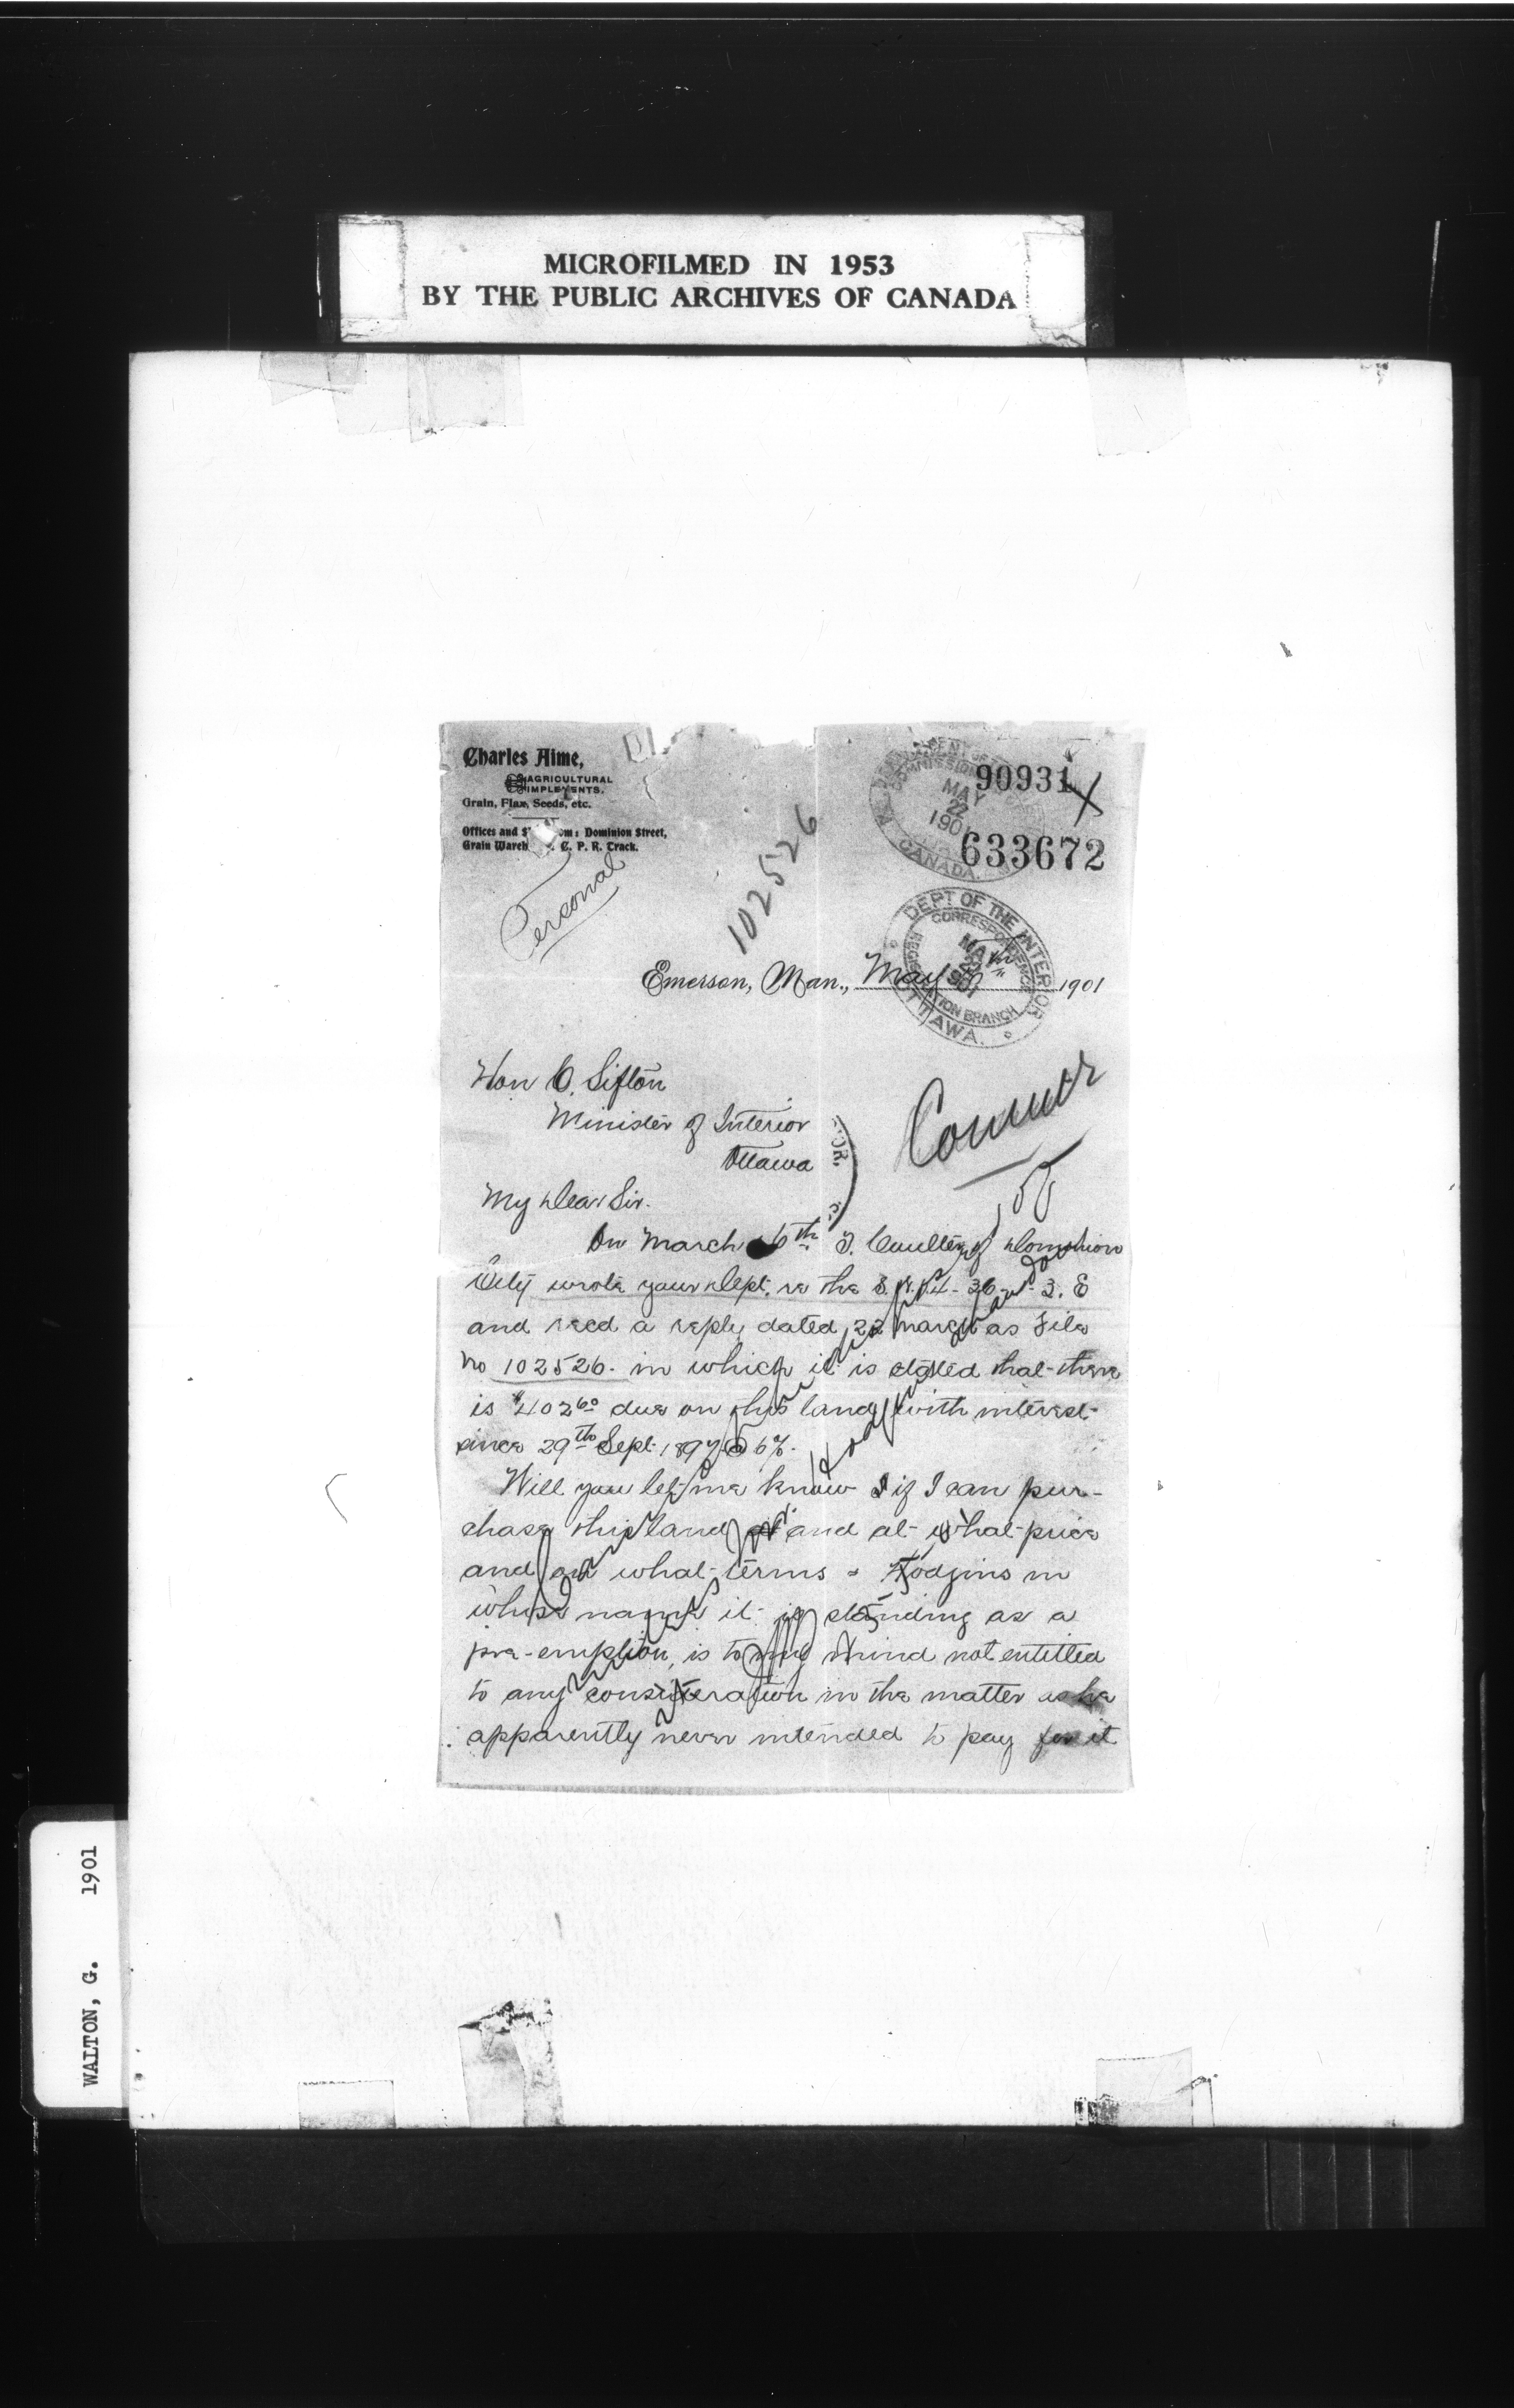 MICROFILMED IN 1953
BY THE PUBLIC ARCHIVES OF CANADA
Charles Aime,
AGRICULTURAL
IMPLEMENTS.
Grain, Flax, Seeds, etc.
Offices and S om: Dominion Street,
Grain Wareh C. P. R. Track.
Personal
102526
90931
MAY
22
1901
CANADA.
633672
DEPT OF THE INTERIOR
CORRESPONDENCE
MAY
1901
REGISTRATION BRANCH
OTTAWA.
Emerson, Man., May 1901
Hon C. Sifton
Minister of Interior
Ottawa
My Dear Sir.
On March 6th T. Coulter of Dominion
City wrote your Dept. re the S. 36 3. E
and recd a reply dated 22 March as File
No 102526. in which it is stated that there
is $402 60 due on this land with interest
since 29th Sept. 1897 @ 6%.
Will you let me know if I can pur-
chase this land and at what price
and on what terms - Hodgins in
whose name it is standing as a
pre-emption, is to my mind not entitled
to any consideration in the matter as he
apparently never intended to pay for it
WALTON, G. 1901